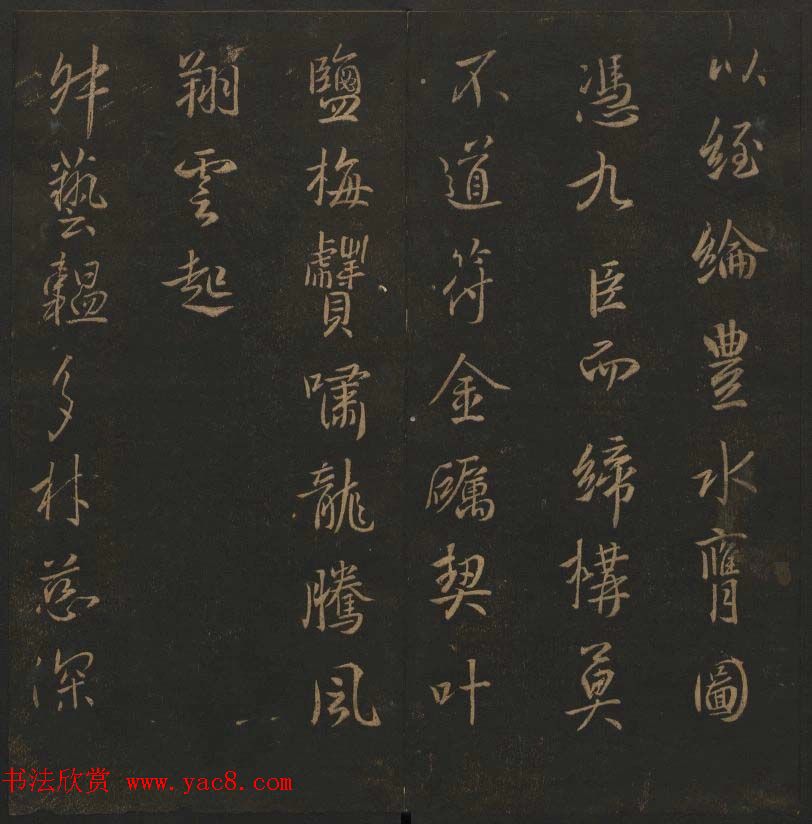 以經綸豊水膺圖
憑九臣而締構莫
不道符金礪契叶
鹽梅虎嘯龍騰風
翔雲起
舛藝韞多材慈深
书法欣赏 www.yac8.com